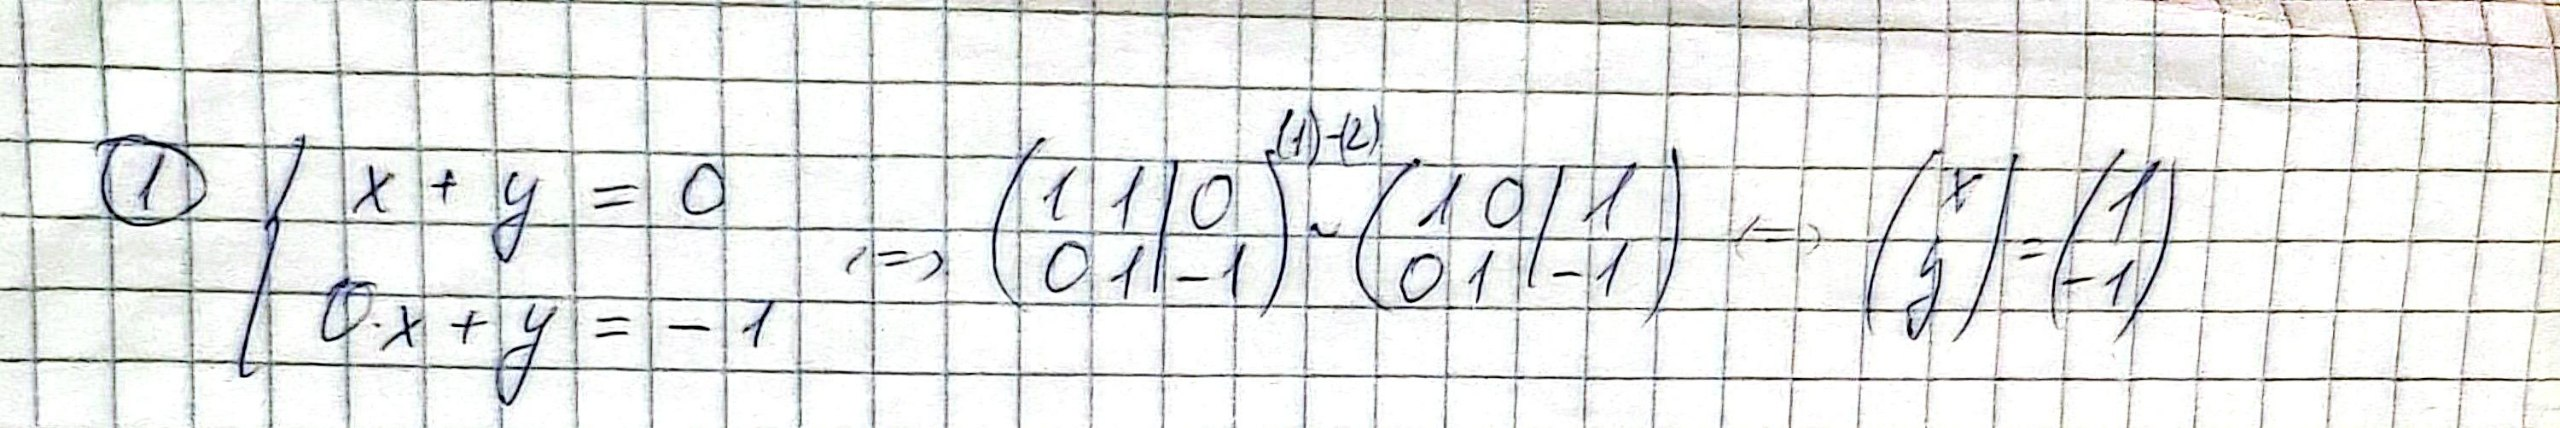 ① { x + y = 0
0·x + y = -1
<=> (1 1 | 0
0 1 | -1) (1)-(2) ~ (1 0 | 1
0 1 | -1) <=> (x
y) = (1
-1)